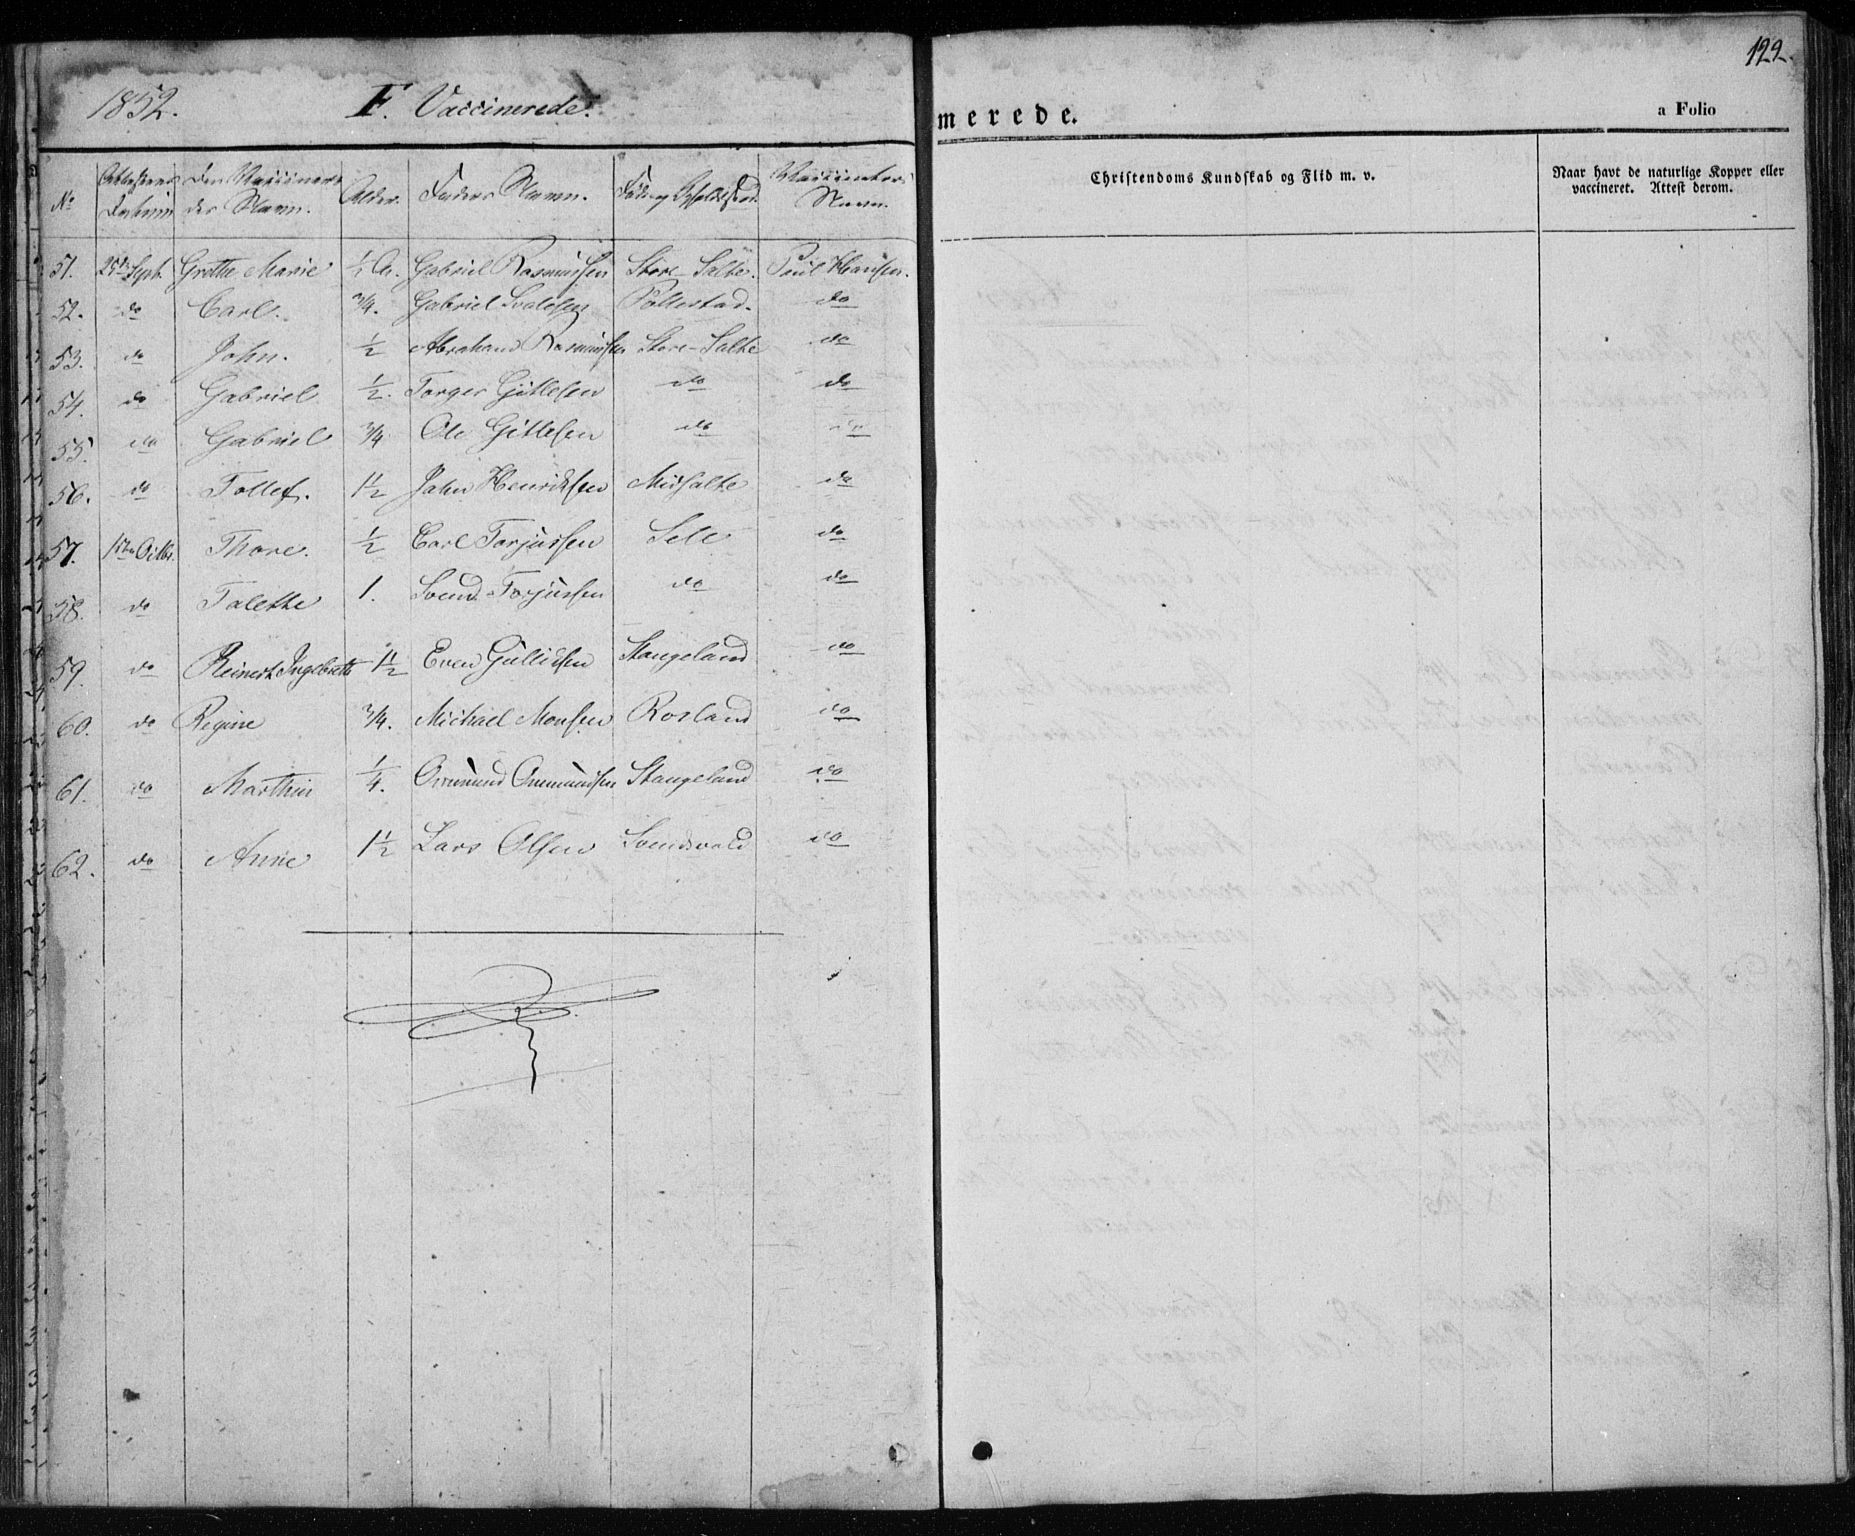 1852.
F. Vaccinerede.
No
Attestens Datum
Den Vaccinere-
des Navn.
Alder.
Faders Navn.
Føde og Opholdssted.
Vaccinators Navn.
51. Sept. Grethe Marie ½ Gabriel Rasmussen Store-Salte. Poul Hansen.
52. do Carl. ¾. Gabriel Svalesen Pollestad. do
53. do John. ½ Abraham Rasmussen Store-Salte do
54. do Gabriel ½. Torger Gitlesen do do
55. do Gabriel ¾ Ole Gitlesen do do
56. do Tollef. 1½ John Henriksen Midsalte do
57. Octbr. Thore. ½ Carl Torjussen Sele do
58. do Talette 1. Svend Torjussen do do
59. do Reinert Ingebreth 1½ Even Gullicsen Stangeland do
60. do Regine ¾. Michael Monsen Rosland do
61. do Marthin ¼. Ommund Ommundsen Stangeland do
62. do Anne 1½ Lars Olsen do
122.
merede.
a Folio
Christendoms Kundskab og Flid m. v.
Naar havt de naturlige Kopper eller
vaccineret. Attest derom.